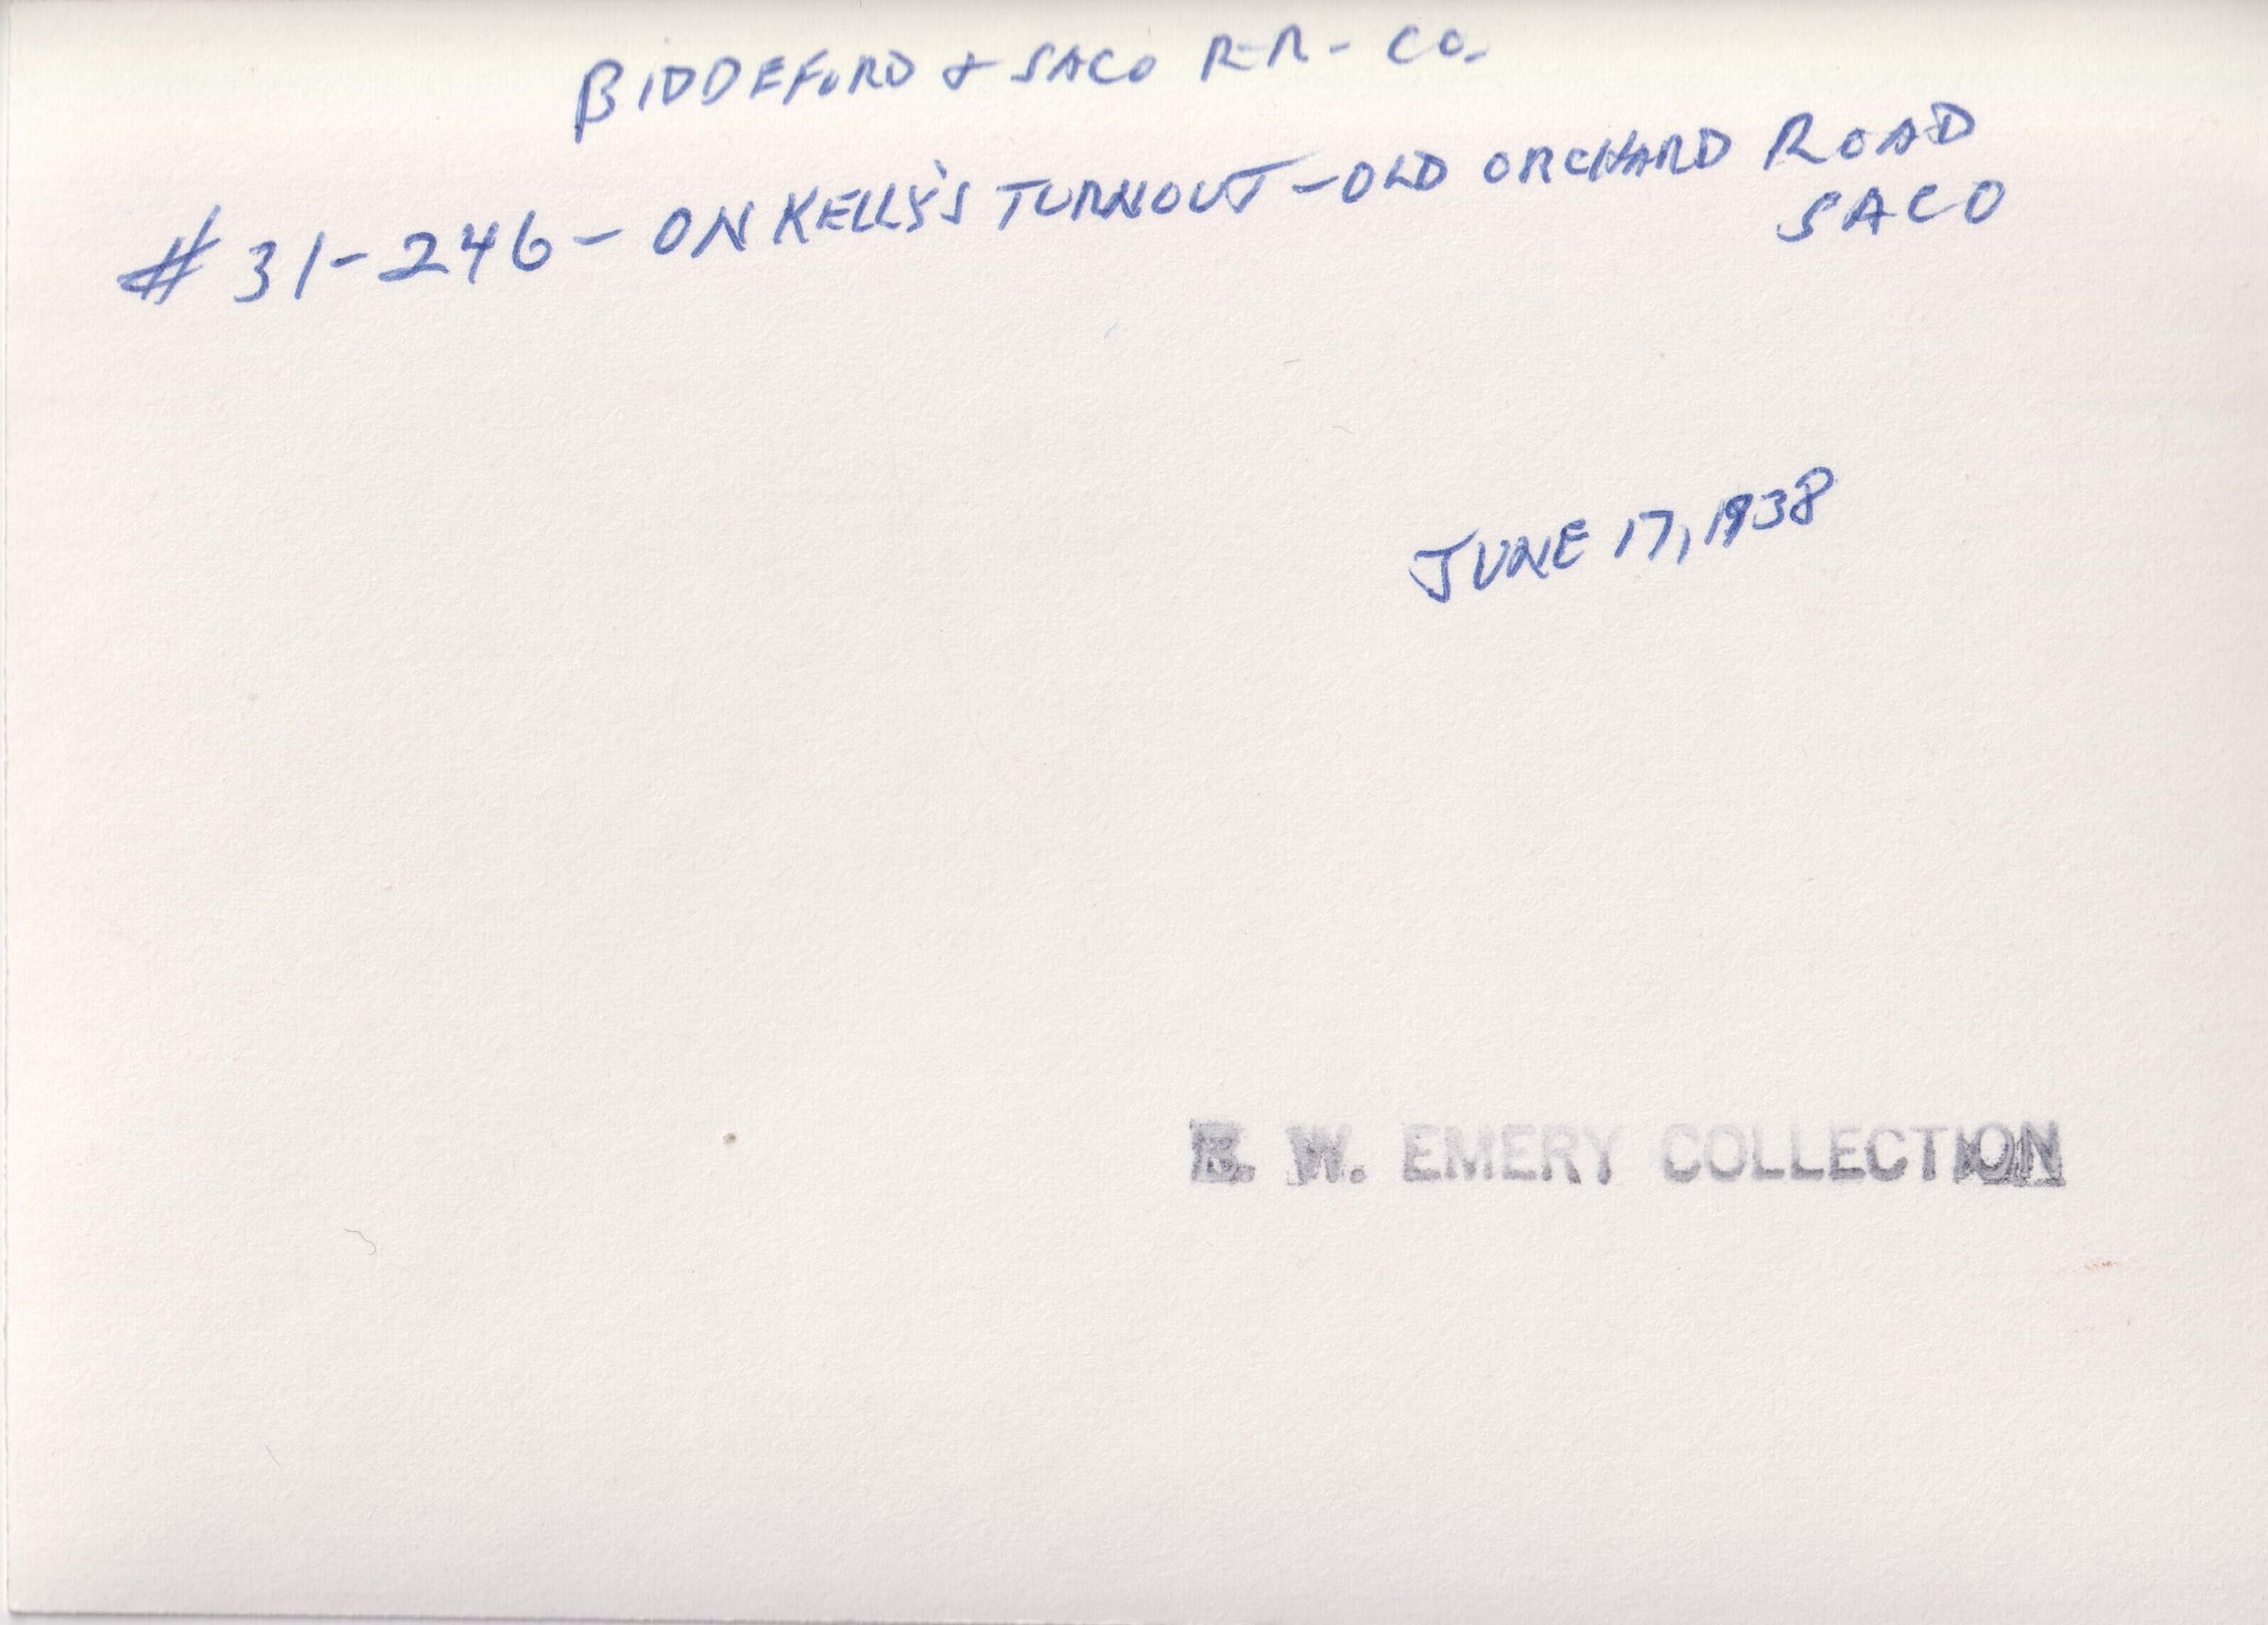 BIDDEFORD & SACO R-R- CO.
# 31-246- ON KELLY'S TURNOUT-OLD ORCHARD ROAD
SACO
JUNE 17, 1938
W. EMERY COLLECTION